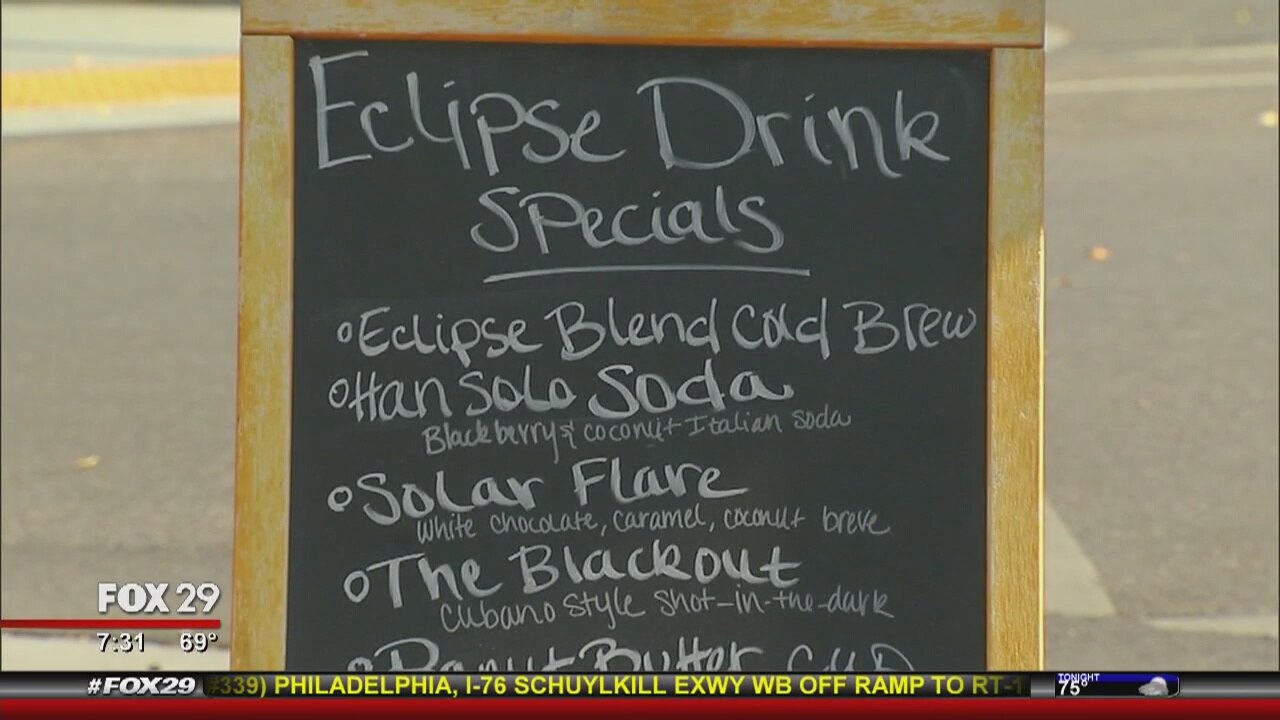 Eclipse Drink
Specials
Eclipse Blend Cold Brew
Han Solo Soda
Blackberry & coconut Italian soda
Solar Flare
white chocolate, caramel, coconut breve
The Blackout
Cubano style shot-in-the-dark
Butter Cup
FOX 29
7:31 69°
#FOX29 #339) PHILADELPHIA, I-76 SCHUYLKILL EXWY WB OFF RAMP TO RT-1
TONIGHT
75°